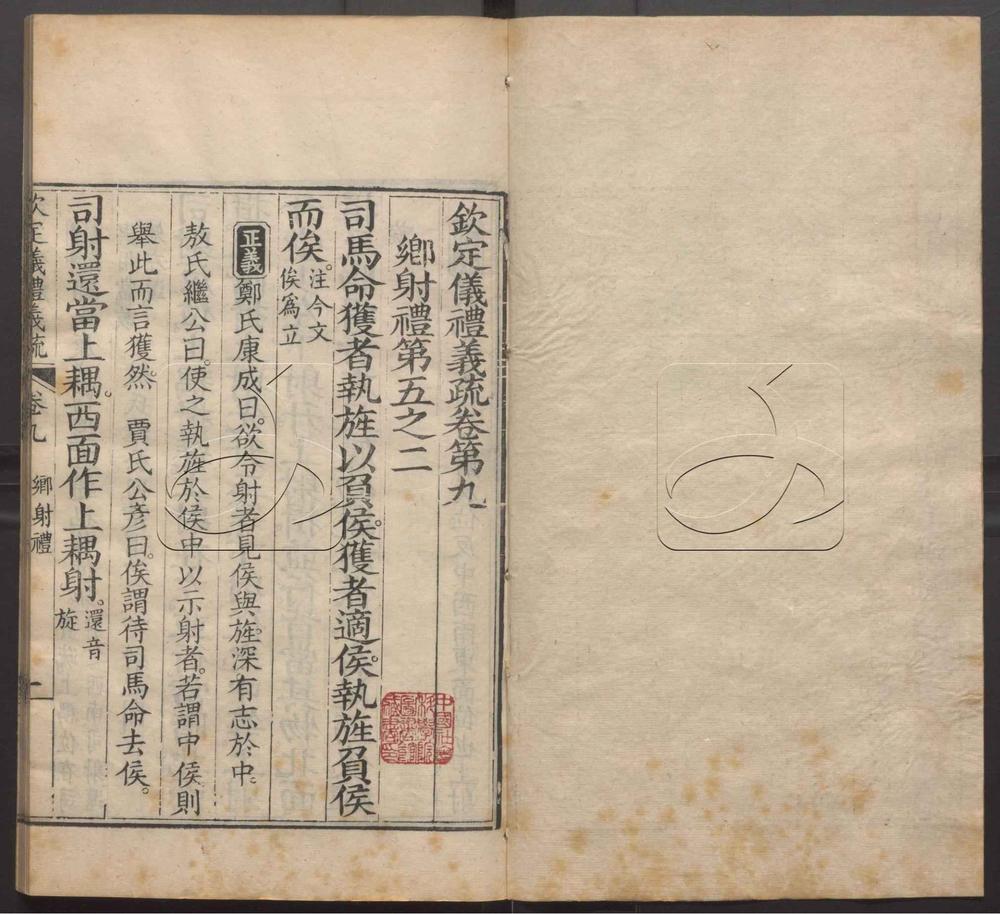 欽定儀禮義疏卷第九
鄉射禮第五之二
司馬命獲者執旌以負侯。獲者適侯。執旌負侯
而俟。注今文
俟爲立
正義鄭氏康成曰。欲令射者見侯與旌。深有志於中。
敖氏繼公曰。使之執旌於侯中以示射者。若謂中侯則
舉此而言獲然。賈氏公彥曰。俟謂待司馬命去侯。
司射還當上耦。西面作上耦射。還音
旋
欽定儀禮義疏 卷九 鄉射禮 一